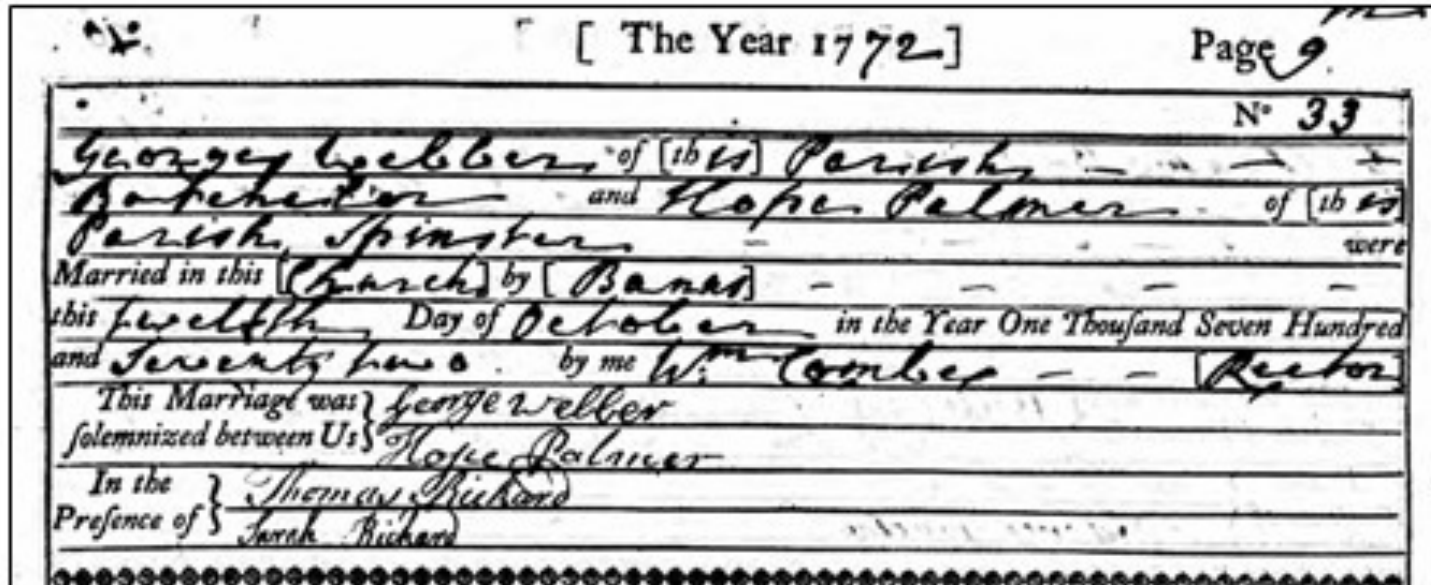 [ The Year 1772 ] Page 9
No 33
George Webber of [this] Parish
Batchelor and Hope Palmer of [this]
Parish Spinster were
Married in this [Church] by [Banns]
this twelfth Day of October in the Year One Thouſand Seven Hundred
and Seventy two by me Wm Combes [Rector]
This Marriage was
ſolemnized between Us } George Webber
Hope Palmer
In the
Preſence of } Thomas Rickard
Sarah Rickard